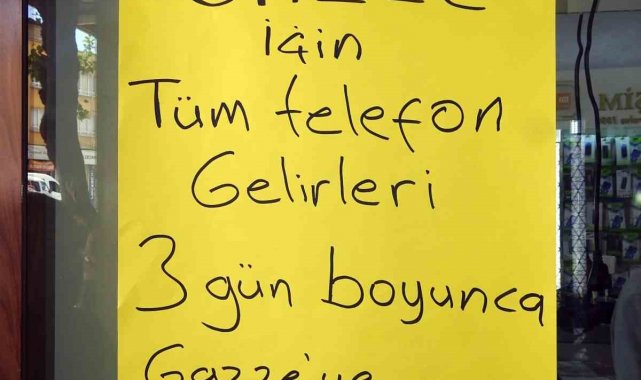 için
Tüm telefon
Gelirleri
3 gün boyunca
Gazze'ye